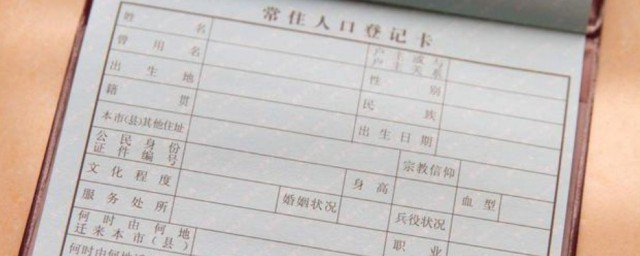 常住人口登记卡
姓名 户主或与户主关系
曾用名 性别
出生地 民族
籍贯 出生日期
本市(县)其他住址 宗教信仰
公民身份证件编号 身高 血型
文化程度 婚姻状况 兵役状况
服务处所 职业
何时由何地迁来本市(县)